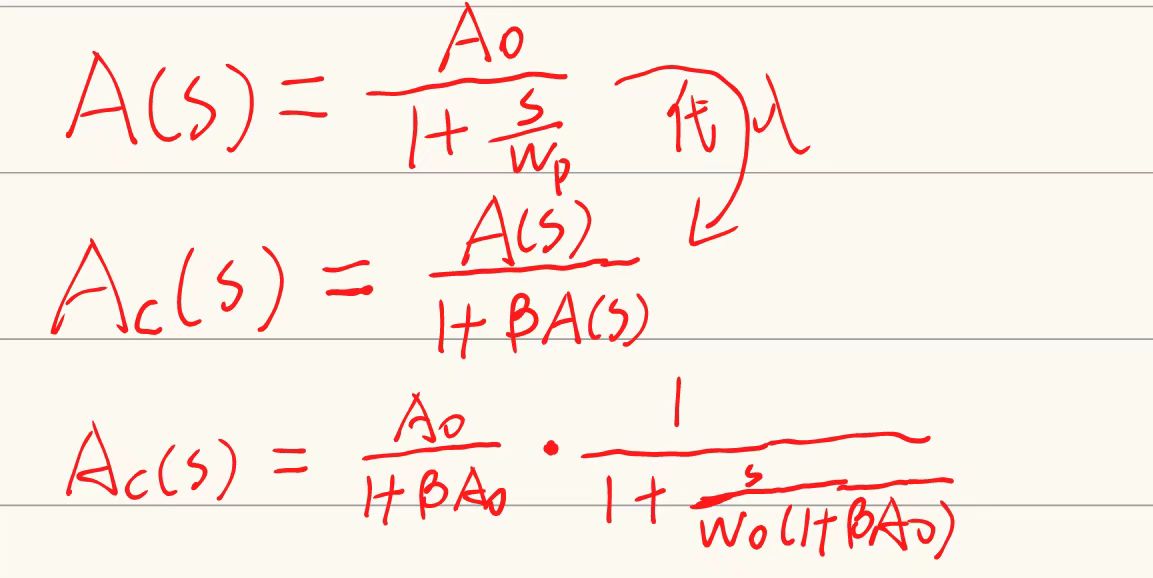 A(s) = A₀ / (1 + s/wₚ) 代入
A_c(s) = A(s) / (1 + βA(s))
A_c(s) = A₀ / (1 + βA₀) · 1 / (1 + s/(w₀(1 + βA₀)))